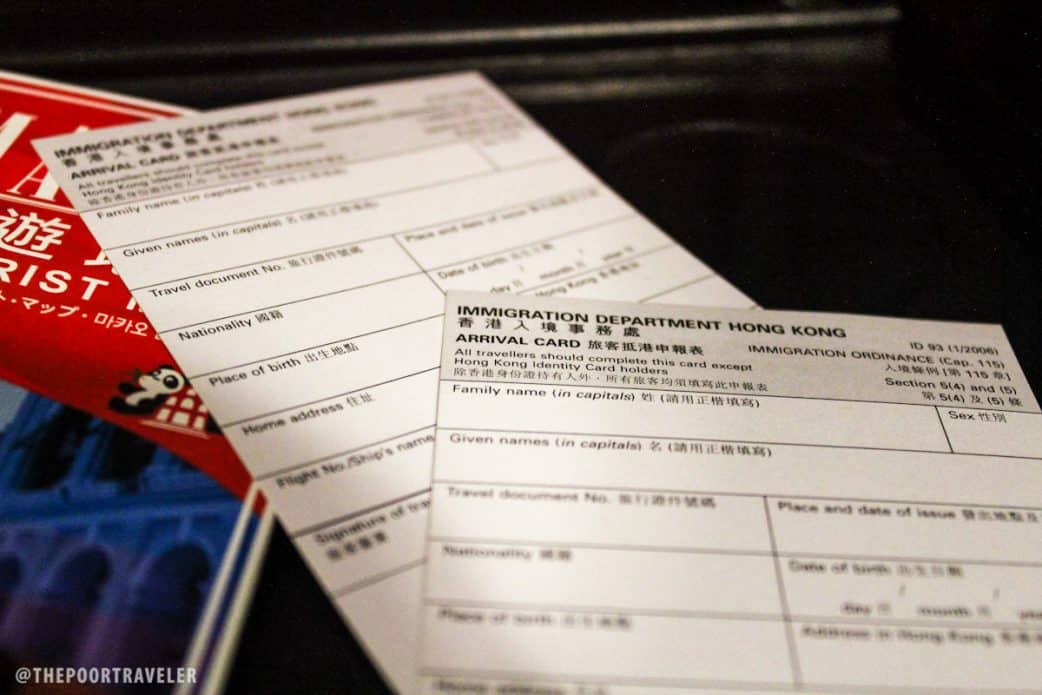 遊
RIST
マップ・마카오
IMMIGRATION DEPARTMENT HONG KONG
香港入境事務處
ARRIVAL CARD 旅客抵港申報表
All travellers should complete this card except
Hong Kong Identity Card holders
Family name (in capitals) 姓 (請用正楷填寫)
Given names (in capitals) 名 (請用正楷填寫)
Travel document No. 旅行證件號碼
Place and date of issue
Nationality 國籍
Date of birth 出生日期
day 日 / month 月 / year 年
Place of birth 出生地點
Hong Kong
Home address 住址
Flight No./Ship's name
Signature of
IMMIGRATION DEPARTMENT HONG KONG
香港入境事務處
ID 93 (1/2006)
ARRIVAL CARD 旅客抵港申報表
IMMIGRATION ORDINANCE (Cap. 115)
All travellers should complete this card except
入境條例 [第 115 章]
Hong Kong Identity Card holders
Section 5(4) and (5)
除香港身份證持有人外，所有旅客均須填寫此申報表
第 5(4) 及 (5) 條
Family name (in capitals) 姓 (請用正楷填寫)
Sex 性別
Given names (in capitals) 名 (請用正楷填寫)
Travel document No. 旅行證件號碼
Place and date of issue 發出地點及
Nationality 國籍
Date of birth 出生日期
day 日 / month 月 /
Place of birth 出生地點
Address in Hong Kong
@THEPOORTRAVELER